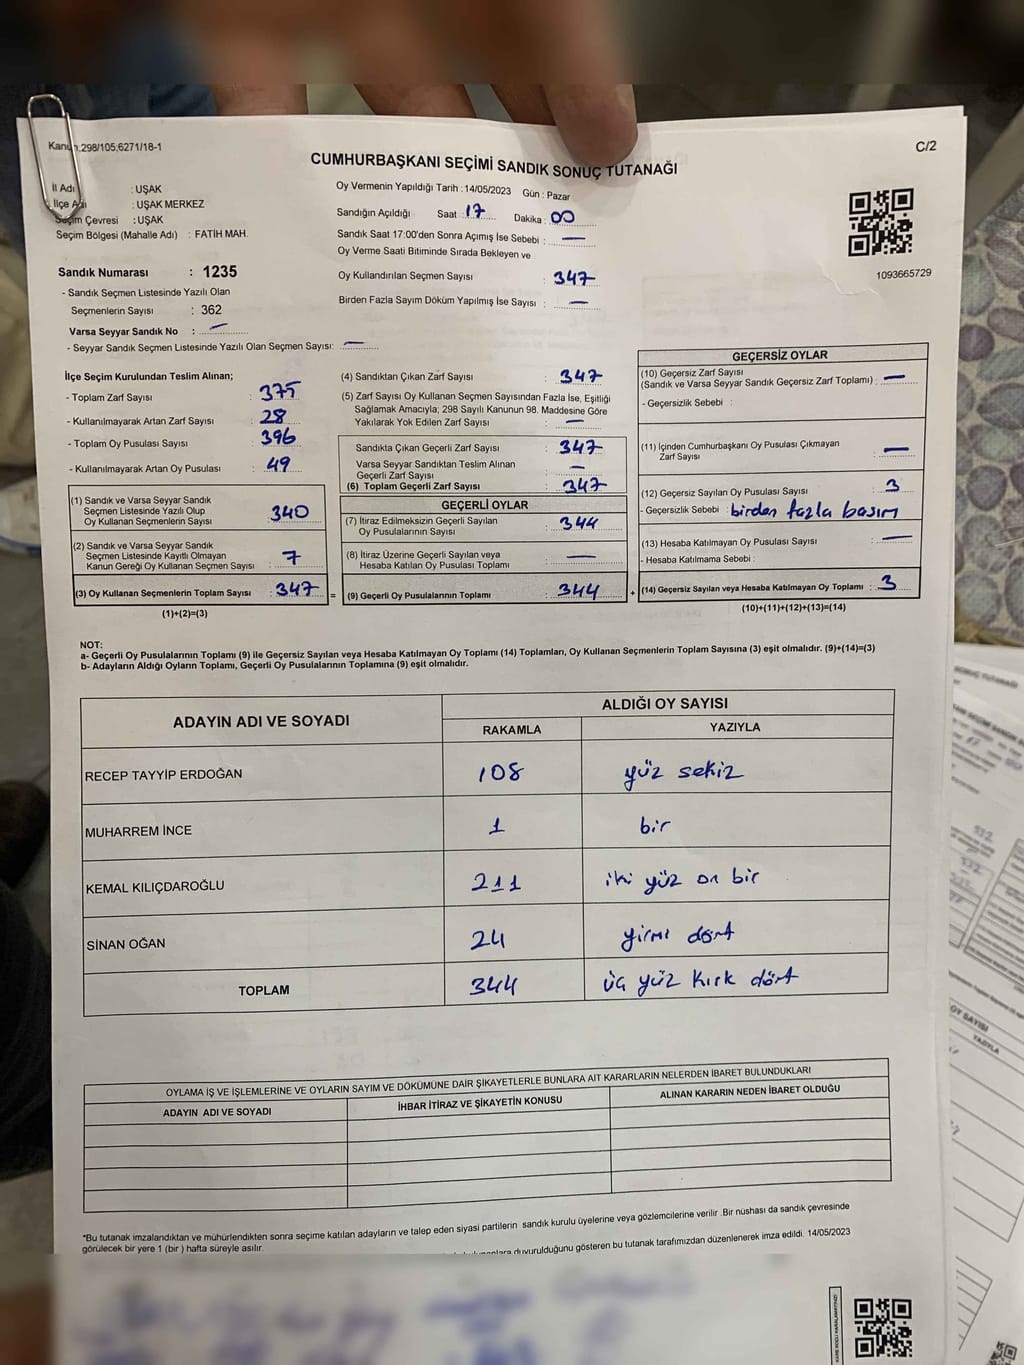 Kanun:298/105;6271/18-1
C/2
CUMHURBAŞKANI SEÇİMİ SANDIK SONUÇ TUTANAĞI
İl Adı : UŞAK
İlçe Adı : UŞAK MERKEZ
Seçim Çevresi : UŞAK
Seçim Bölgesi (Mahalle Adı) : FATİH MAH.
Oy Vermenin Yapıldığı Tarih : 14/05/2023 Gün : Pazar
Sandığın Açıldığı Saat : 17 Dakika : 00
Sandık Saat 17:00'den Sonra Açımış İse Sebebi : —
Oy Verme Saati Bitiminde Sırada Bekleyen ve
Oy Kullandırılan Seçmen Sayısı : 347
Birden Fazla Sayım Döküm Yapılmış İse Sayısı : —
1093665729
Sandık Numarası : 1235
- Sandık Seçmen Listesinde Yazılı Olan
Seçmenlerin Sayısı : 362
Varsa Seyyar Sandık No : —
- Seyyar Sandık Seçmen Listesinde Yazılı Olan Seçmen Sayısı: —
İlçe Seçim Kurulundan Teslim Alınan;
- Toplam Zarf Sayısı : 375
- Kullanılmayarak Artan Zarf Sayısı : 28
- Toplam Oy Pusulası Sayısı : 396
- Kullanılmayarak Artan Oy Pusulası : 49
(1) Sandık ve Varsa Seyyar Sandık
Seçmen Listesinde Yazılı Olup
Oy Kullanan Seçmenlerin Sayısı : 340
(2) Sandık ve Varsa Seyyar Sandık
Seçmen Listesinde Kayıtlı Olmayan
Kanun Gereği Oy Kullanan Seçmen Sayısı : 7
(3) Oy Kullanan Seçmenlerin Toplam Sayısı : 347 =
(1)+(2)=(3)
(4) Sandıktan Çıkan Zarf Sayısı : 347
(5) Zarf Sayısı Oy Kullanan Seçmen Sayısından Fazla İse, Eşitliği
Sağlamak Amacıyla; 298 Sayılı Kanunun 98. Maddesine Göre
Yakılarak Yok Edilen Zarf Sayısı : —
Sandıkta Çıkan Geçerli Zarf Sayısı : 347
Varsa Seyyar Sandıktan Teslim Alınan
Geçerli Zarf Sayısı : —
(6) Toplam Geçerli Zarf Sayısı : 347
GEÇERLİ OYLAR
(7) İtiraz Edilmeksizin Geçerli Sayılan
Oy Pusulalarının Sayısı : 344
(8) İtiraz Üzerine Geçerli Sayılan veya
Hesaba Katılan Oy Pusulası Toplamı : —
(9) Geçerli Oy Pusulalarının Toplamı : 344 +
GEÇERSİZ OYLAR
(10) Geçersiz Zarf Sayısı
(Sandık ve Varsa Seyyar Sandık Geçersiz Zarf Toplamı) : —
- Geçersizlik Sebebi :
(11) İçinden Cumhurbaşkanı Oy Pusulası Çıkmayan
Zarf Sayısı : —
(12) Geçersiz Sayılan Oy Pusulası Sayısı : 3
- Geçersizlik Sebebi : birden fazla basım
(13) Hesaba Katılmayan Oy Pusulası Sayısı : —
- Hesaba Katılmama Sebebi :
(14) Geçersiz Sayılan veya Hesaba Katılmayan Oy Toplamı : 3
(10)+(11)+(12)+(13)=(14)
NOT:
a- Geçerli Oy Pusulalarının Toplamı (9) ile Geçersiz Sayılan veya Hesaba Katılmayan Oy Toplamı (14) Toplamları, Oy Kullanan Seçmenlerin Toplam Sayısına (3) eşit olmalıdır. (9)+(14)=(3)
b- Adayların Aldığı Oyların Toplamı, Geçerli Oy Pusulalarının Toplamına (9) eşit olmalıdır.
ADAYIN ADI VE SOYADI
ALDIĞI OY SAYISI
RAKAMLA YAZIYLA
RECEP TAYYİP ERDOĞAN 108 yüz sekiz
MUHARREM İNCE 1 bir
KEMAL KILIÇDAROĞLU 211 iki yüz on bir
SİNAN OĞAN 24 yirmi dört
TOPLAM 344 üç yüz kırk dört
OYLAMA İŞ VE İŞLEMLERİNE VE OYLARIN SAYIM VE DÖKÜMÜNE DAİR ŞİKAYETLERLE BUNLARA AİT KARARLARIN NELERDEN İBARET BULUNDUKLARI
ADAYIN ADI VE SOYADI İHBAR İTİRAZ VE ŞİKAYETİN KONUSU ALINAN KARARIN NEDEN İBARET OLDUĞU
*Bu tutanak imzalandıktan ve mühürlendikten sonra seçime katılan adayların ve talep eden siyasi partilerin sandık kurulu üyelerine veya gözlemcilerine verilir .Bir nüshası da sandık çevresinde
görülecek bir yere 1 (bir ) hafta süreyle asılır.
duyurulduğunu gösteren bu tutanak tarafımızdan düzenlenerek imza edildi. 14/05/2023